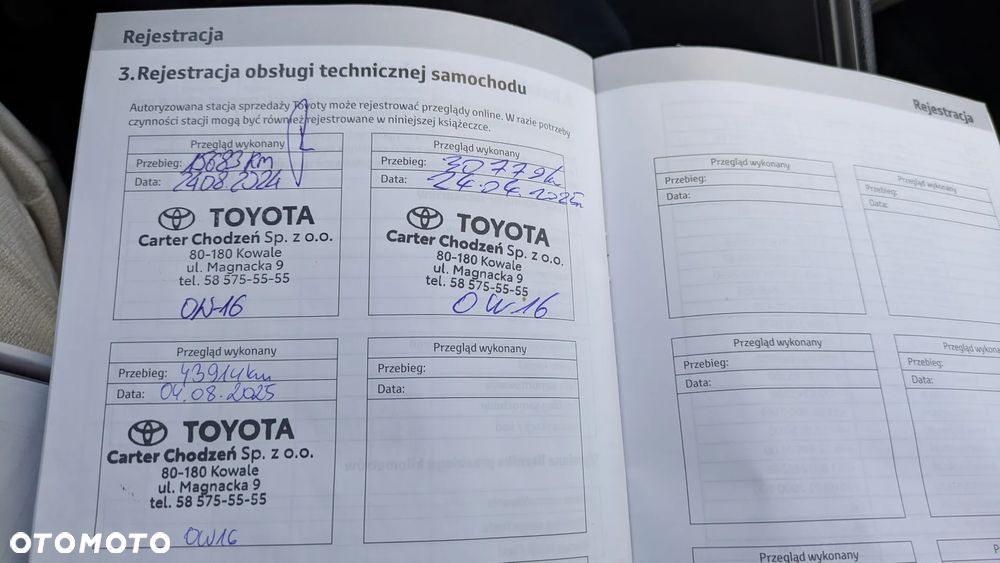 Rejestracja
3. Rejestracja obsługi technicznej samochodu
Autoryzowana stacja sprzedaży Toyoty może rejestrować przeglądy online. W razie potrzeby
czynności stacji mogą być również rejestrowane w niniejszej książeczce.
Przegląd wykonany
Przebieg: 15683 km
Data: 24.08.2024
TOYOTA
Carter Chodzeń Sp. z o.o.
80-180 Kowale
ul. Magnacka 9
tel. 58 575-55-55
OW16
Przegląd wykonany
Przebieg: 30779 km
Data: 24.04.2025
TOYOTA
Carter Chodzeń Sp. z o.o.
80-180 Kowale
ul. Magnacka 9
tel. 58 575-55-55
OW16
Przegląd wykonany
Przebieg: 43914 km
Data: 04.08.2025
TOYOTA
Carter Chodzeń Sp. z o.o.
80-180 Kowale
ul. Magnacka 9
tel. 58 575-55-55
OW16
Przegląd wykonany
Przebieg:
Data:
Rejestracja
Przegląd wykonany
Przebieg:
Data:
Przegląd wykonany
Przebieg:
Data:
Przegląd wykonany
Przebieg:
Data:
Przegląd wykona
Przebieg:
Data:
Przegląd wykonany
OTOMOTO